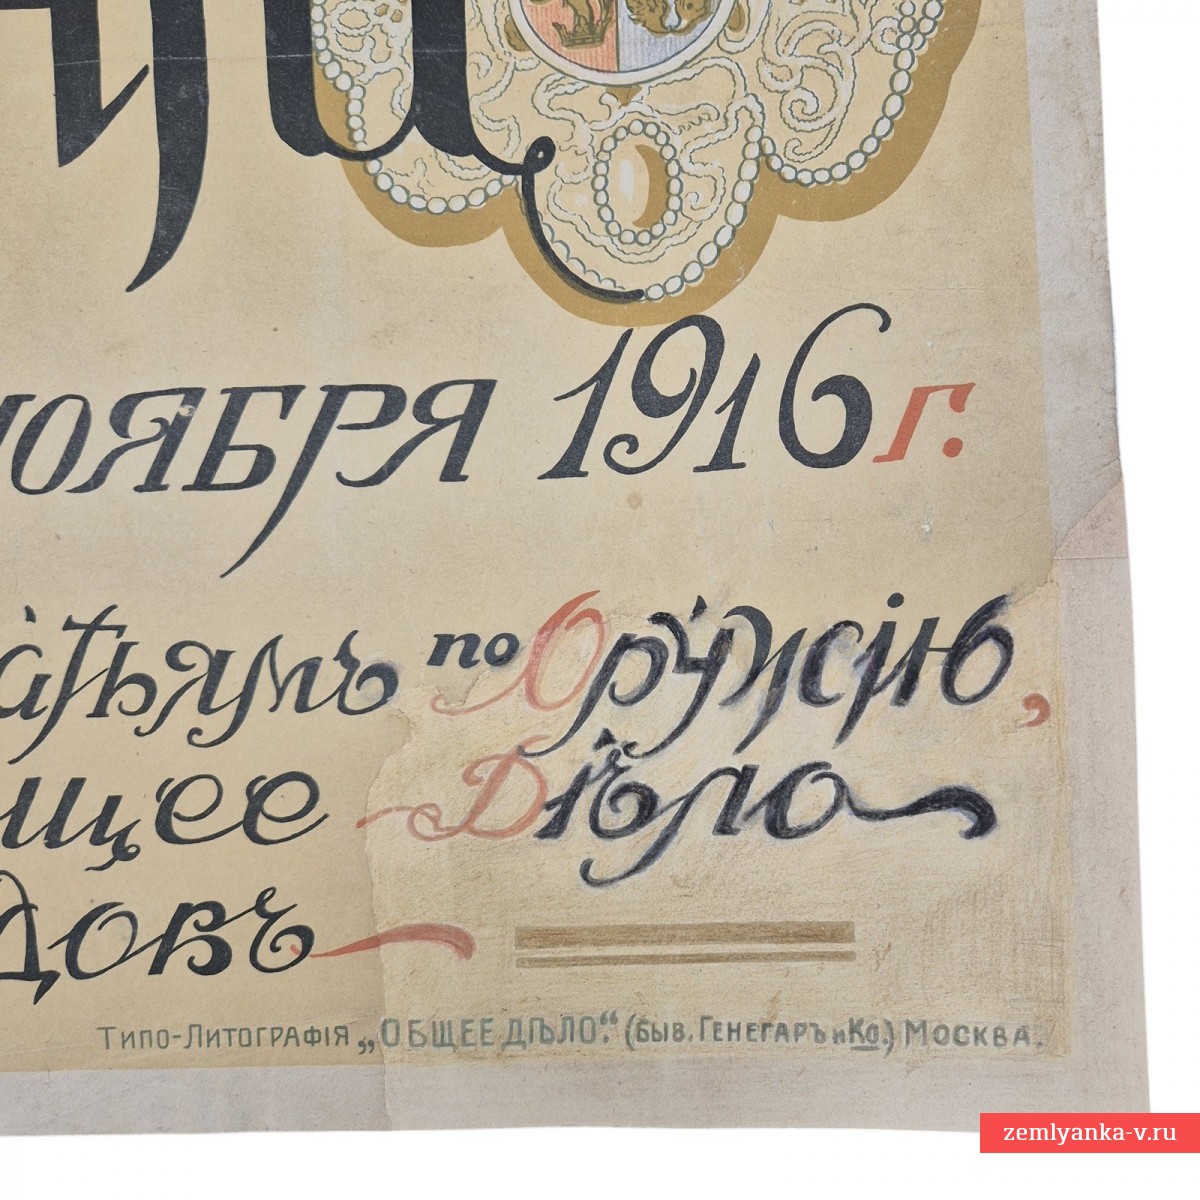 ноября 1916 г.
по Оружiю,
Дѣло
Типо-Литографiя „ОБЩЕЕ ДѢЛО“. (быв. Генегаръ и Ко.) Москва.
zemlyanka-v.ru